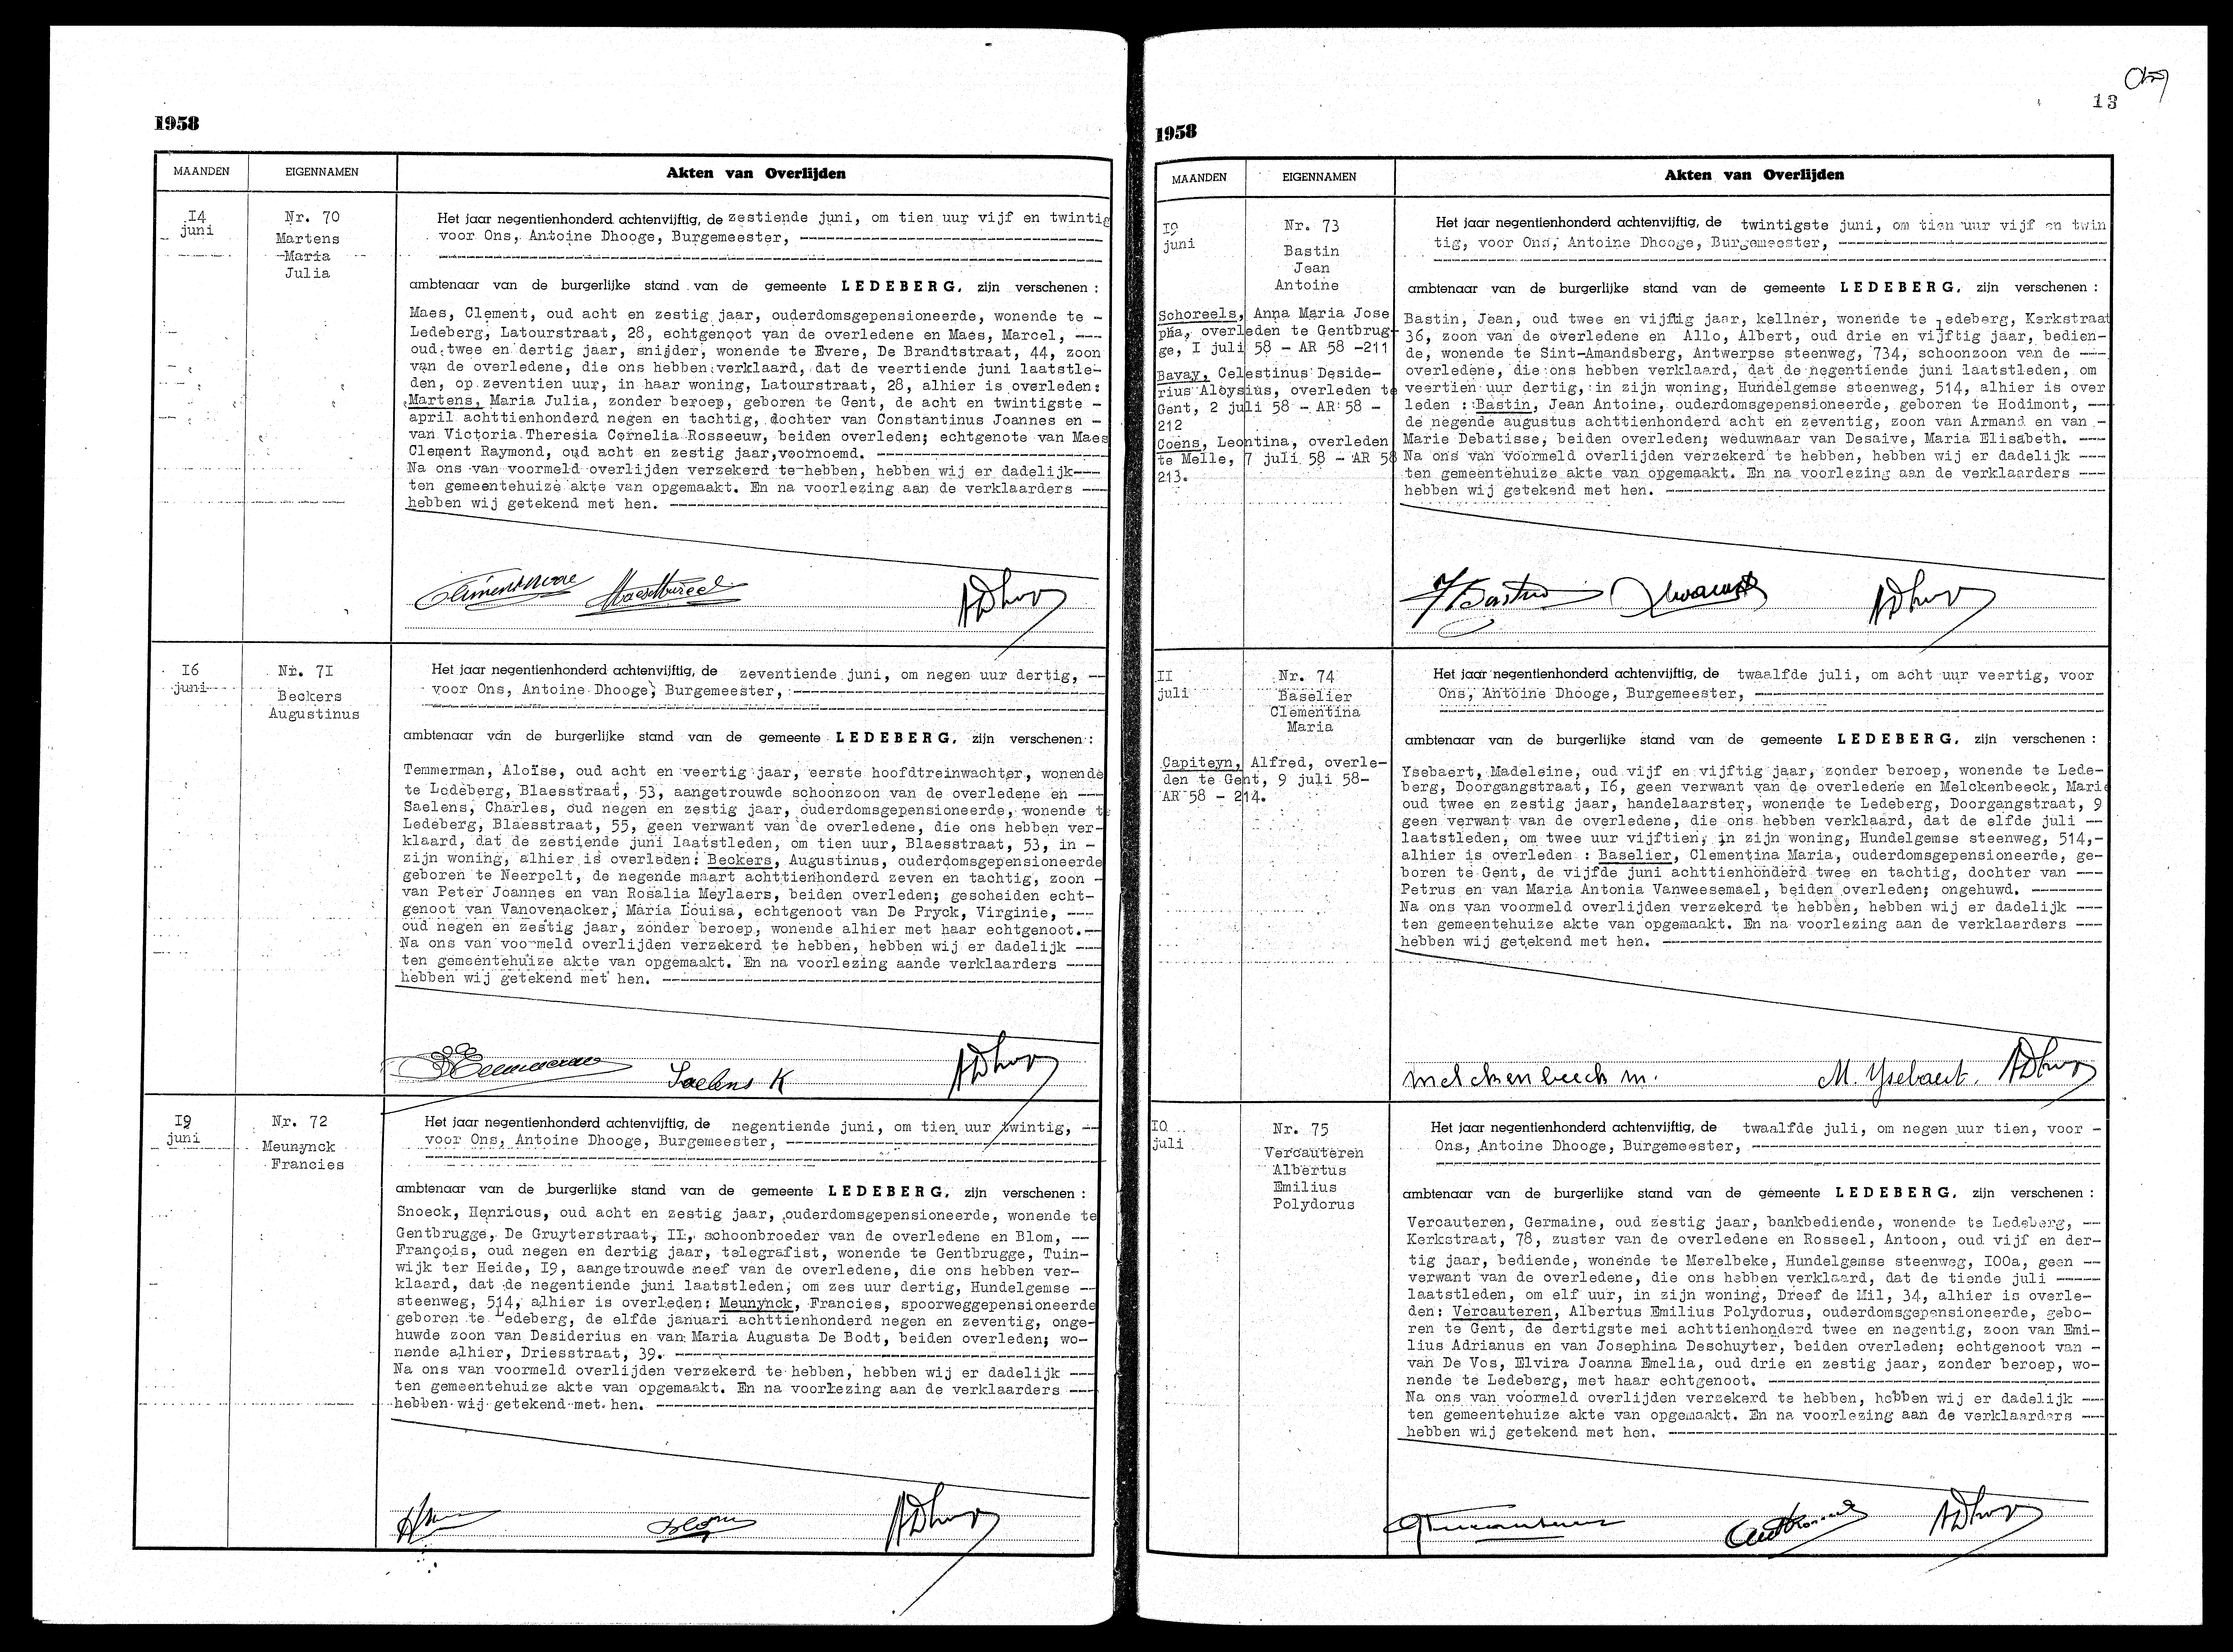 1958
MAANDEN
EIGENNAMEN
Akten van Overlijden
I4
juni
Nr. 70
Martens
Maria
Julia
Het jaar negentienhonderd achtenvijftig, de zestiende juni, om tien uur vijf en twintig
voor Ons, Antoine Dhooge, Burgemeester,
ambtenaar van de burgerlijke stand van de gemeente LEDEBERG, zijn verschenen :
Maes, Clement, oud acht en zestig jaar, ouderdomsgepensioneerde, wonende te -
Ledeberg, Latourstraat, 28, echtgenoot van de overledene en Maes, Marcel, ---
oud twee en dertig jaar, snijder, wonende te Evere, De Brandtstraat, 44, zoon
van de overledene, die ons hebben verklaard, dat de veertiende juni laatstle-
den, op zeventien uur, in haar woning, Latourstraat, 28, alhier is overleden:
Martens, Maria Julia, zonder beroep, geboren te Gent, de acht en twintigste -
april achttienhonderd negen en tachtig, dochter van Constantinus Joannes en -
van Victoria Theresia Cornelia Rosseeuw, beiden overleden; echtgenote van Maes
Clement Raymond, oud acht en zestig jaar,voornoemd.
Na ons van voormeld overlijden verzekerd te hebben, hebben wij er dadelijk---
ten gemeentehuize akte van opgemaakt. En na voorlezing aan de verklaarders ---
hebben wij getekend met hen.
I6
juni
Nr. 7I
Beckers
Augustinus
Het jaar negentienhonderd achtenvijftig, de zeventiende juni, om negen uur dertig, --
voor Ons, Antoine Dhooge, Burgemeester,
ambtenaar van de burgerlijke stand van de gemeente LEDEBERG, zijn verschenen :
Temmerman, Aloïse, oud acht en veertig jaar, eerste hoofdtreinwachter, wonende
te Ledeberg, Blaesstraat, 53, aangetrouwde schoonzoon van de overledene en ---
Saelens, Charles, oud negen en zestig jaar, ouderdomsgepensioneerde, wonende te
Ledeberg, Blaesstraat, 55, geen verwant van de overledene, die ons hebben ver-
klaard, dat de zestiende juni laatstleden, om tien uur, Blaesstraat, 53, in -
zijn woning, alhier is overleden: Beckers, Augustinus, ouderdomsgepensioneerde
geboren te Neerpelt, de negende maart achttienhonderd zeven en tachtig, zoon -
van Peter Joannes en van Rosalia Meylaers, beiden overleden; gescheiden echt-
genoot van Vanovenacker, Maria Louisa, echtgenoot van De Pryck, Virginie, ---
oud negen en zestig jaar, zonder beroep, wonende alhier met haar echtgenoot.--
Na ons van voormeld overlijden verzekerd te hebben, hebben wij er dadelijk ---
ten gemeentehuize akte van opgemaakt. En na voorlezing aande verklaarders ---
hebben wij getekend met hen.
Saelens K
I9
juni
Nr. 72
Meunynck
Francies
Het jaar negentienhonderd achtenvijftig, de negentiende juni, om tien uur twintig, --
voor Ons, Antoine Dhooge, Burgemeester,
ambtenaar van de burgerlijke stand van de gemeente LEDEBERG, zijn verschenen :
Snoeck, Henricus, oud acht en zestig jaar, ouderdomsgepensioneerde, wonende te
Gentbrugge, De Gruyterstraat, II, schoonbroeder van de overledene en Blom, --
François, oud negen en dertig jaar, telegrafist, wonende te Gentbrugge, Tuin-
wijk ter Heide, I9, aangetrouwde neef van de overledene, die ons hebben ver-
klaard, dat de negentiende juni laatstleden, om zes uur dertig, Hundelgemse --
steenweg, 514, alhier is overleden: Meunynck, Francies, spoorweggepensioneerde
geboren te Ledeberg, de elfde januari achttienhonderd negen en zeventig, onge-
huwde zoon van Desiderius en van Maria Augusta De Bodt, beiden overleden; wo-
nende alhier, Driesstraat, 39.
Na ons van voormeld overlijden verzekerd te hebben, hebben wij er dadelijk ---
ten gemeentehuize akte van opgemaakt. En na voorlezing aan de verklaarders ---
hebben wij getekend met hen.
13
1958
MAANDEN
EIGENNAMEN
Akten van Overlijden
I9
juni
Nr. 73
Bastin
Jean
Antoine
Schoreels, Anna Maria Jose
pha, overleden te Gentbrug-
ge, I juli 58 - AR 58 -211
Bavay, Celestinus Deside-
rius Aloysius, overleden te
Gent, 2 juli 58 - AR 58 -
212
Coens, Leontina, overleden
te Melle, 7 juli 58 - AR 58
213.
Het jaar negentienhonderd achtenvijftig, de twintigste juni, om tien uur vijf en twin
tig, voor Ons, Antoine Dhooge, Burgemeester,
ambtenaar van de burgerlijke stand van de gemeente LEDEBERG, zijn verschenen :
Bastin, Jean, oud twee en vijftig jaar, kellner, wonende te Ledeberg, Kerkstraat
36, zoon van de overledene en Allo, Albert, oud drie en vijftig jaar, bedien-
de, wonende te Sint-Amandsberg, Antwerpse steenweg, 734, schoonzoon van de ---
overledene, die ons hebben verklaard, dat de negentiende juni laatstleden, om
veertien uur dertig, in zijn woning, Hundelgemse steenweg, 514, alhier is over
leden : Bastin, Jean Antoine, ouderdomsgepensioneerde, geboren te Hodimont, --
de negende augustus achttienhonderd acht en zeventig, zoon van Armand en van -
Marie Debatisse, beiden overleden; weduwnaar van Desaive, Maria Elisabeth. ---
Na ons van voormeld overlijden verzekerd te hebben, hebben wij er dadelijk ---
ten gemeentehuize akte van opgemaakt. En na voorlezing aan de verklaarders ---
hebben wij getekend met hen.
II
juli
Nr. 74
Baselier
Clementina
Maria
Capiteyn, Alfred, overle-
den te Gent, 9 juli 58-
AR 58 - 214.
Het jaar negentienhonderd achtenvijftig, de twaalfde juli, om acht uur veertig, voor
Ons, Antoine Dhooge, Burgemeester,
ambtenaar van de burgerlijke stand van de gemeente LEDEBERG, zijn verschenen :
Ysebaert, Madeleine, oud vijf en vijftig jaar, zonder beroep, wonende te Lede-
berg, Doorgangstraat, I6, geen verwant van de overledene en Melckenbeeck, Marie
oud twee en zestig jaar, handelaarster, wonende te Ledeberg, Doorgangstraat, 9
geen verwant van de overledene, die ons hebben verklaard, dat de elfde juli --
laatstleden, om twee uur vijftien, in zijn woning, Hundelgemse steenweg, 514,-
alhier is overleden : Baselier, Clementina Maria, ouderdomsgepensioneerde, ge-
boren te Gent, de vijfde juni achttienhonderd twee en tachtig, dochter van ---
Petrus en van Maria Antonia Vanweesemael, beiden overleden; ongehuwd.
Na ons van voormeld overlijden verzekerd te hebben, hebben wij er dadelijk ---
ten gemeentehuize akte van opgemaakt. En na voorlezing aan de verklaarders ---
hebben wij getekend met hen.
melckenbeeck m. M. Ysebaert.
IO
juli
Nr. 75
Vercauteren
Albertus
Emilius
Polydorus
Het jaar negentienhonderd achtenvijftig, de twaalfde juli, om negen uur tien, voor -
Ons, Antoine Dhooge, Burgemeester,
ambtenaar van de burgerlijke stand van de gemeente LEDEBERG, zijn verschenen :
Vercauteren, Germaine, oud zestig jaar, bankbediende, wonende te Ledeberg, --
Kerkstraat, 78, zuster van de overledene en Rosseel, Antoon, oud vijf en der-
tig jaar, bediende, wonende te Merelbeke, Hundelgemse steenweg, I00a, geen --
verwant van de overledene, die ons hebben verklaard, dat de tiende juli
laatstleden, om elf uur, in zijn woning, Dreef de Mil, 34, alhier is overle-
den: Vercauteren, Albertus Emilius Polydorus, ouderdomsgepensioneerde, gebo-
ren te Gent, de dertigste mei achttienhonderd twee en negentig, zoon van Emi-
lius Adrianus en van Josephina Deschuyter, beiden overleden; echtgenoot van -
van De Vos, Elvira Joanna Emelia, oud drie en zestig jaar, zonder beroep, wo-
nende te Ledeberg, met haar echtgenoot.
Na ons van voormeld overlijden verzekerd te hebben, hebben wij er dadelijk ---
ten gemeentehuize akte van opgemaakt. En na voorlezing aan de verklaarders ---
hebben wij getekend met hen.